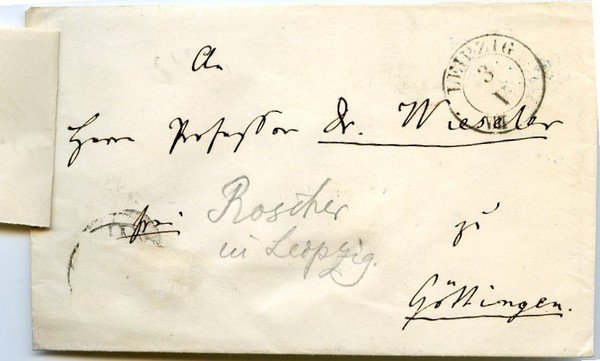 An
LEIPZIG
3
I
Herrn Professor Dr. Wieseler
frei
Roscher
in Leipzig.
zu
Göttingen.